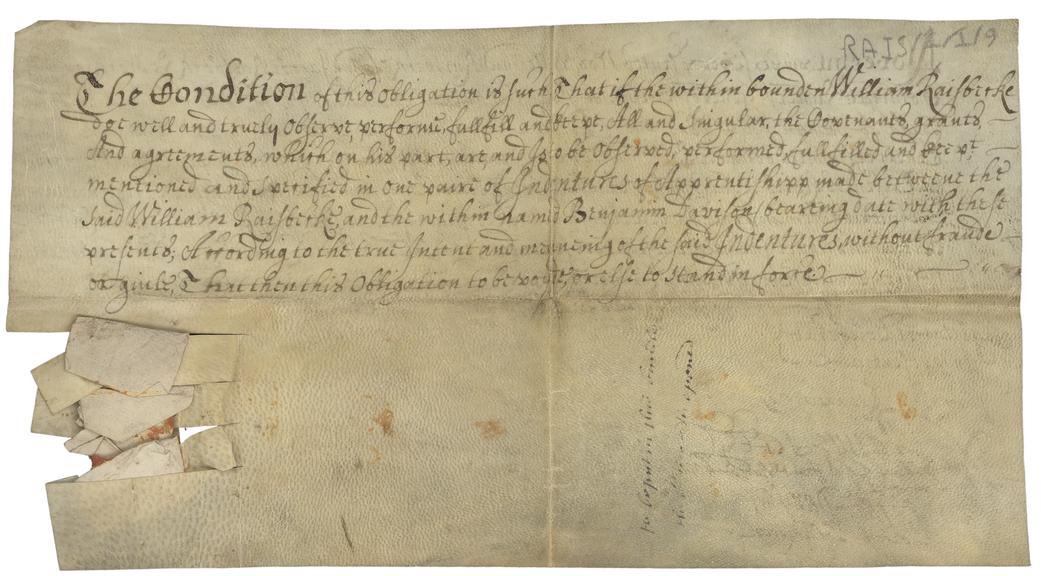 RAIS/1/1/9
The Condition of this Obligation is such That if the within bounden William Raisbecke
doe well and truely Observe, performe, fullfill and keepe, All and Singular, the Covenants, grants
And agreements, which on his part, are and Is to be Observed, performed, fullfilled and kept
mentioned and specified in one paire of Indentures of Apprentishipp made betweene the
said William Raisbecke, and the within named Benjamin Davison, bearing date with these
presents; According to the true Intent and meaneing of the said Indentures, without fraude
or guile, That then this Obligation to be voyde, or else to Stand in force